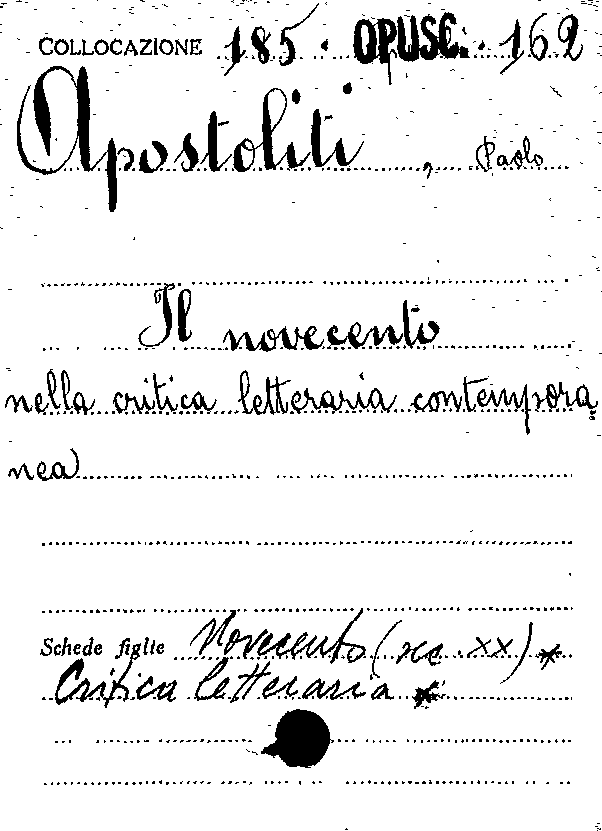 COLLOCAZIONE 185. OPUSC. 162
Apostoliti, Paolo
Il novecento
nella critica letteraria contempora=
nea
Schede figlie Novecento (sec. XX) *
Critica letteraria *